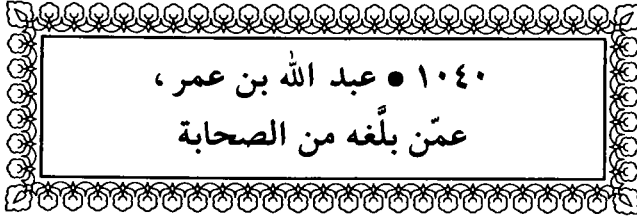 ١٠٤٠ ● عبد الله بن عمر ،
عمّن بلَّغه من الصحابة